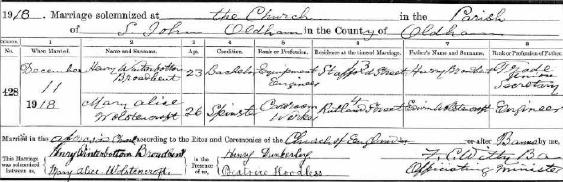 1918. Marriage solemnized at the Church in the Parish
of S. John Oldham in the County of Oldham
1 2 3 4 5 6 7 8
No. When Married. Name and Surname. Age. Condition. Rank or Profession. Residence at the time of Marriage. Father's Name and Surname. Rank or Profession of Father.
428 December 11 1918 Henry Winterbottom Broadbent 23 Bachelor Equipment Engineer Stafford Street Henry Secretary
Mary Alice Wolstencroft 26 Spinster Worker Rutland Street Edwin Wolstencroft Engineer
Married in the according to the Rites and Ceremonies of the Church of England or after Banns by me,
This Marriage was solemnized between us, Henry Winterbottom Broadbent in the Presence of us, Henry Dunkerley
Mary Alice Wolstencroft Beatrice Officiating Minister